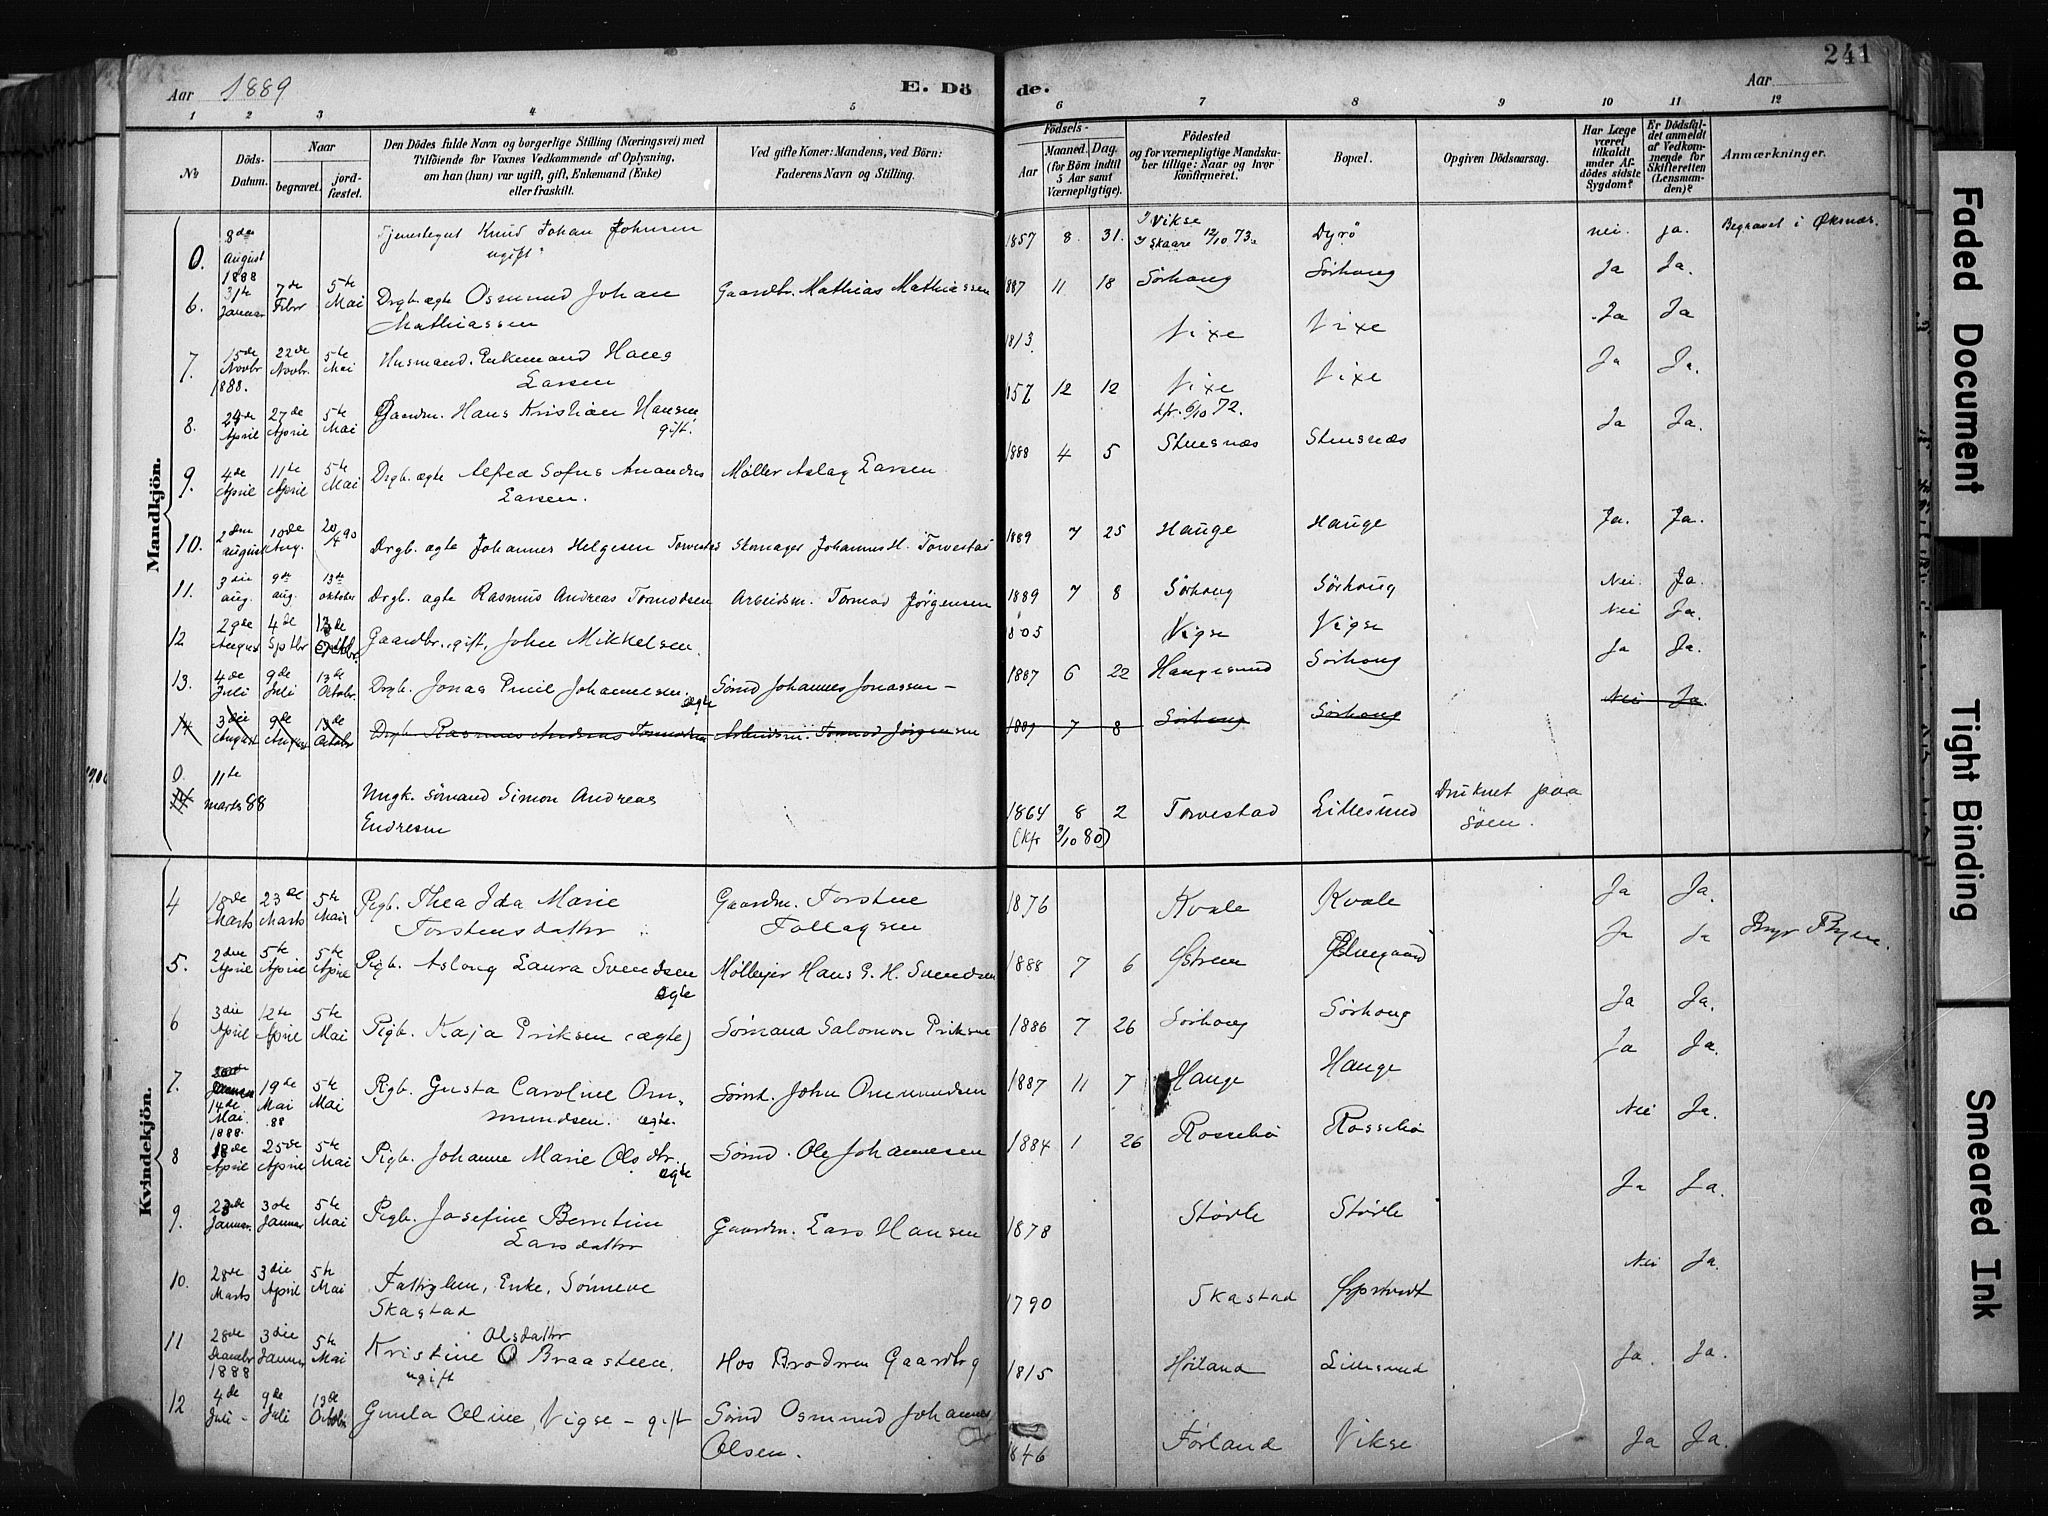 Aar 1889
E. Dö
de.
Aar
241
1 2 3 4 5 6 7 8 9 10 11 12
No
Döds-Datum.
Naar
begravet.
jord-fæstet.
Den Dödes fulde Navn og borgerlige Stilling (Næringsvei) med
Tilföiende for Voxnes Vedkommende af Oplysning,
om han (hun) var ugift, gift, Enkemand (Enke)
eller fraskilt.
Ved gifte Koner: Mandens, ved Börn:
Faderens Navn og Stilling.
Födsels-
Aar
Maaned. Dag.
(for Börn indtil
5 Aar samt
Værnepligtige).
Födested
og for værnepligtige Mandska-
ber tillige: Naar og hvor
konfirmeret.
Bopæl.
Opgiven Dödsaarsag.
Har Læge
været
tilkaldt
under Af-
dödes sidste
Sygdom?
Er Dödsfal-
det anmeldt
af Vedkom-
mende for
Skifteretten
(Lensman-
den)?
Anmærkninger.
Mandkjön.
0. 8de August 1888 Tjenestegut Knud Johan Johnsen ugift 1857 8. 31. Vikse Skaare 12/10 73. Dyrö nei. ja. Begravet i Öksnæs.
6. 31te Januar 7de Febr 5te Mai Drgb. ægte Osmund Johan Mathiassen Gaardbr. Mathias Mathiassen 1887 11 18 Sörhoug Sörhoug Ja Ja.
7. 15de Novbr 1888. 22de Novbr. 5te Mai Husmand. Enkemand Hans Larsen 1813 Vixe Vixe Ja Ja
8. 24de April 27de April 5te Mai Gaardm. Hans Kristian Hansen gift. 12 12 Vixe 6/10 72. Vixe Ja Ja.
9. 4de April 11te April 5te Mai Drgb. ægte Alfred Sofus Larsen. Møller Aslag Larsen 1888 4 5 Stensnæs Stensnæs Ja Ja.
10. 2den august 10de Aug. 20/4 90 Drgb. ægte Johannes Helgesen Torvestad Skomager Johannes H. Torvestad 1889 7 25 Hauge Hauge Ja. Ja.
11. 3die aug. 9de aug. 13de oktober Drgb. ægte Rasmus Andreas Tormodsen Arbeidsm. Tormod Jörgensen 1889 7 8 Sörhoug Sörhoug Nei. Ja.
12 29de August 4de Sptbr 13de Gaardbr. gift, John Mikkelsen. 1805 Vigse Vigse Nei Ja.
13. 4de Juli 9de Juli 13de Octobr. Drgb. Jonas Emil Johannesen. ægte Sömd Johannes Jonassen - 1887 6 22 Haugesund Sörhoug Ja Ja.
14 3die August 9de August 13de Octobr Drgb. Rasmus Andreas Tormodsen Arbeidsm. Tormod Jörgensen 1889 7 8 Sörhoug Sörhoug Nei Ja
0. 11te marts 88 Ungk. sömand Simon Andreas Endresen 1864 8 2 (Kfr 3/10 80) Torvestad Lillesund Druknet paa Söen.
Kvindekjön.
4 18de Marts 23de Marts 5te Mai Pigb. Thea Ida Marie Torstensdatter Gaardm. Torsten Tollagsen 1876 Kvale Kvale Ja Ja.
5. 2den April 5te April 5te April Pigb. Aslong Laura Svendsen ægte Møllejer Hans G. H. Svendsen 1888 7 6 Ja Ja
6 3die April 12te April 5te Mai Pigb. Kaja Eriksen (ægte) Sömand Salomon Eriksen 1886 7 26 Sörhoug Sörhoug Ja Ja.
7. 14de Mai. 1888. 19de Mai 88 5te Mai Pigb. Gusta Caroline Ommundsen. ægte. Sömd. John Ommundsen 1887 11 7 Hauge Hauge Ja Ja.
8 18de April 25de April 5te Mai Pigb. Johanne Marie Olsdtr. ægte Sömd. Ole Johannesen 1884 1 26 Rossebö Rossebö Nei Ja.
9. 23de Januar. 30de Januar 5te Mai Pigb. Josefine Berntine Larsdatter Gaardm. Lars Hansen 1878 Störle Störle Ja Ja.
10. 28de Marts 3die April 5te Mai Fattiglem, Enke, Sönneve Skastad 1790 Skastad Nei Ja.
11 28de Decmbr 1888 3die Januar 5te Mai Kristine Olsdatter Braasteen ugift Hos Brodren Gaardbrg 1815 Høiland Lillesund Ja. Ja.
12 4de Juli - 9de Juli 13de Octobr Gunla Oline Vigse - gift Sömd Osmund Johannes Olsen. 1846 Førland Vikse Ja Ja.
Faded Document
Tight Binding
Smeared Ink